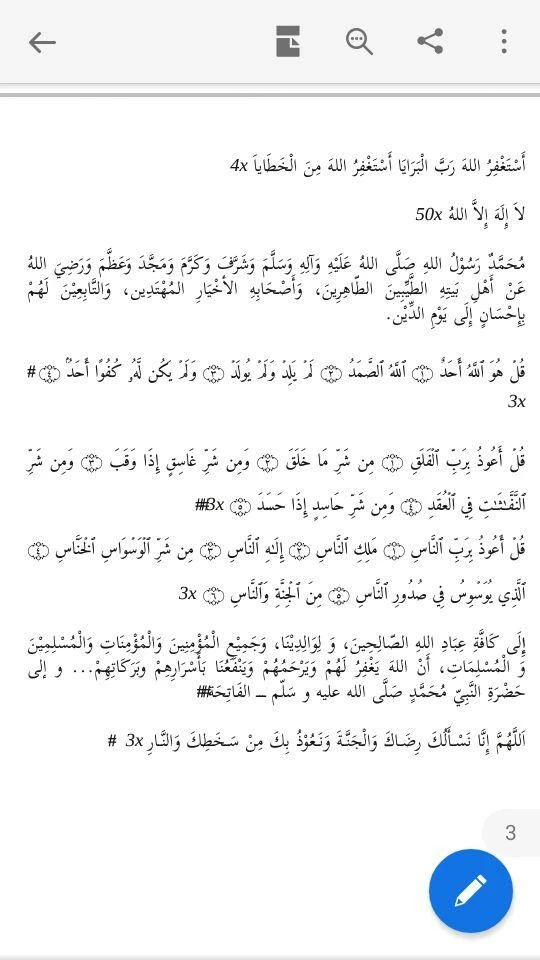 أَسْتَغْفِرُ اللهَ رَبَّ الْبَرَايَا أَسْتَغْفِرُ اللهَ مِنَ الْخَطَاياَ 4x
لاَ إِلَهَ إِلاَّ اللهُ 50x
مُحَمَّدٌ رَسُوْلُ اللهِ صَلَّى اللهُ عَلَيْهِ وَآلِهِ وَسَلَّمَ وَشَرَّفَ وَكَرَّمَ وَمَجَّدَ وَعَظَّمَ وَرَضِيَ اللهُ
عَنْ أَهْلِ بَيتِهِ الطَّيِّبِينَ الطّاهِرِينَ، وَأَصْحَابِهِ الأَخْيَارِ المُهْتَدِين، وَالتَّابِعِيْنَ لَهُمْ
بِإِحْسَانٍ إِلَى يَوْمِ الدِّيْنِ.
قُلۡ هُوَ ٱللَّهُ أَحَدٌ ١ ٱللَّهُ ٱلصَّمَدُ ٢ لَمۡ يَلِدۡ وَلَمۡ يُولَدۡ ٣ وَلَمۡ يَكُن لَّهُۥ كُفُوًا أَحَدُۢ ٤ #
3x
قُلۡ أَعُوذُ بِرَبِّ ٱلۡفَلَقِ ١ مِن شَرِّ مَا خَلَقَ ٢ وَمِن شَرِّ غَاسِقٍ إِذَا وَقَبَ ٣ وَمِن شَرِّ
ٱلنَّفَّٰثَٰتِ فِي ٱلۡعُقَدِ ٤ وَمِن شَرِّ حَاسِدٍ إِذَا حَسَدَ ٥ 3x#
قُلۡ أَعُوذُ بِرَبِّ ٱلنَّاسِ ١ مَلِكِ ٱلنَّاسِ ٢ إِلَٰهِ ٱلنَّاسِ ٣ مِن شَرِّ ٱلۡوَسۡوَاسِ ٱلۡخَنَّاسِ ٤
ٱلَّذِي يُوَسۡوِسُ فِي صُدُورِ ٱلنَّاسِ ٥ مِنَ ٱلۡجِنَّةِ وَٱلنَّاسِ ٦ 3x
إِلَى كَافَّةِ عِبَادِ اللهِ الصّالِحِينَ، وَ لِوَالِدِيْنَا، وَجَمِيْعِ الْمُؤْمِنِينَ وَالْمُؤْمِنَاتِ وَالْمُسْلِمِيْنَ
وَ الْمُسْلِمَاتِ، أَنْ اللهَ يَغْفِرُ لَهُمْ وَيَرْحَمُهُمْ وَيَنْفَعُنَا بَأَسْرَارِهِمْ وبَرَكَاتِهِمْ... و إلى
حَضْرَةِ النَّبِيّ مُحَمَّدٍ صَلَّى الله عليه و سَلّم ــ الفَاتِحَة#
اَللَّهُمَّ إِنَّا نَسْأَلُكَ رِضَاكَ وَالْجَنَّةَ وَنَعُوْذُ بِكَ مِنْ سَخَطِكَ وَالنَّارِ 3x #
3